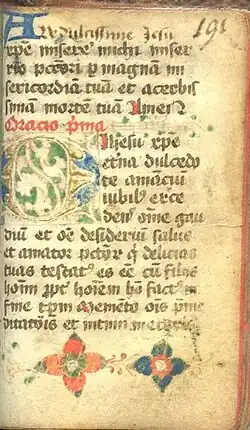 191
Ave dulcissime Jesu
xpe miserere michi miser
rio pctori p magnam mi
sericordiam tuā et acerbis
simam mortē tuā Amen
Oracio p̄ma
O jhesu xpe
et̄na dulcedo
te amāciū
iubilꝰ exce
dens om̄e gau
diū et oē desideriū salus
et amator pctor̄ q̄ delicias
tuas testatꝰ es eē cū filijs
hoīm ꝓpt̄ hoīem hō factꝰ in
fine tp̄m Memēto oīs p̄me
ditatōis et intimi meroris